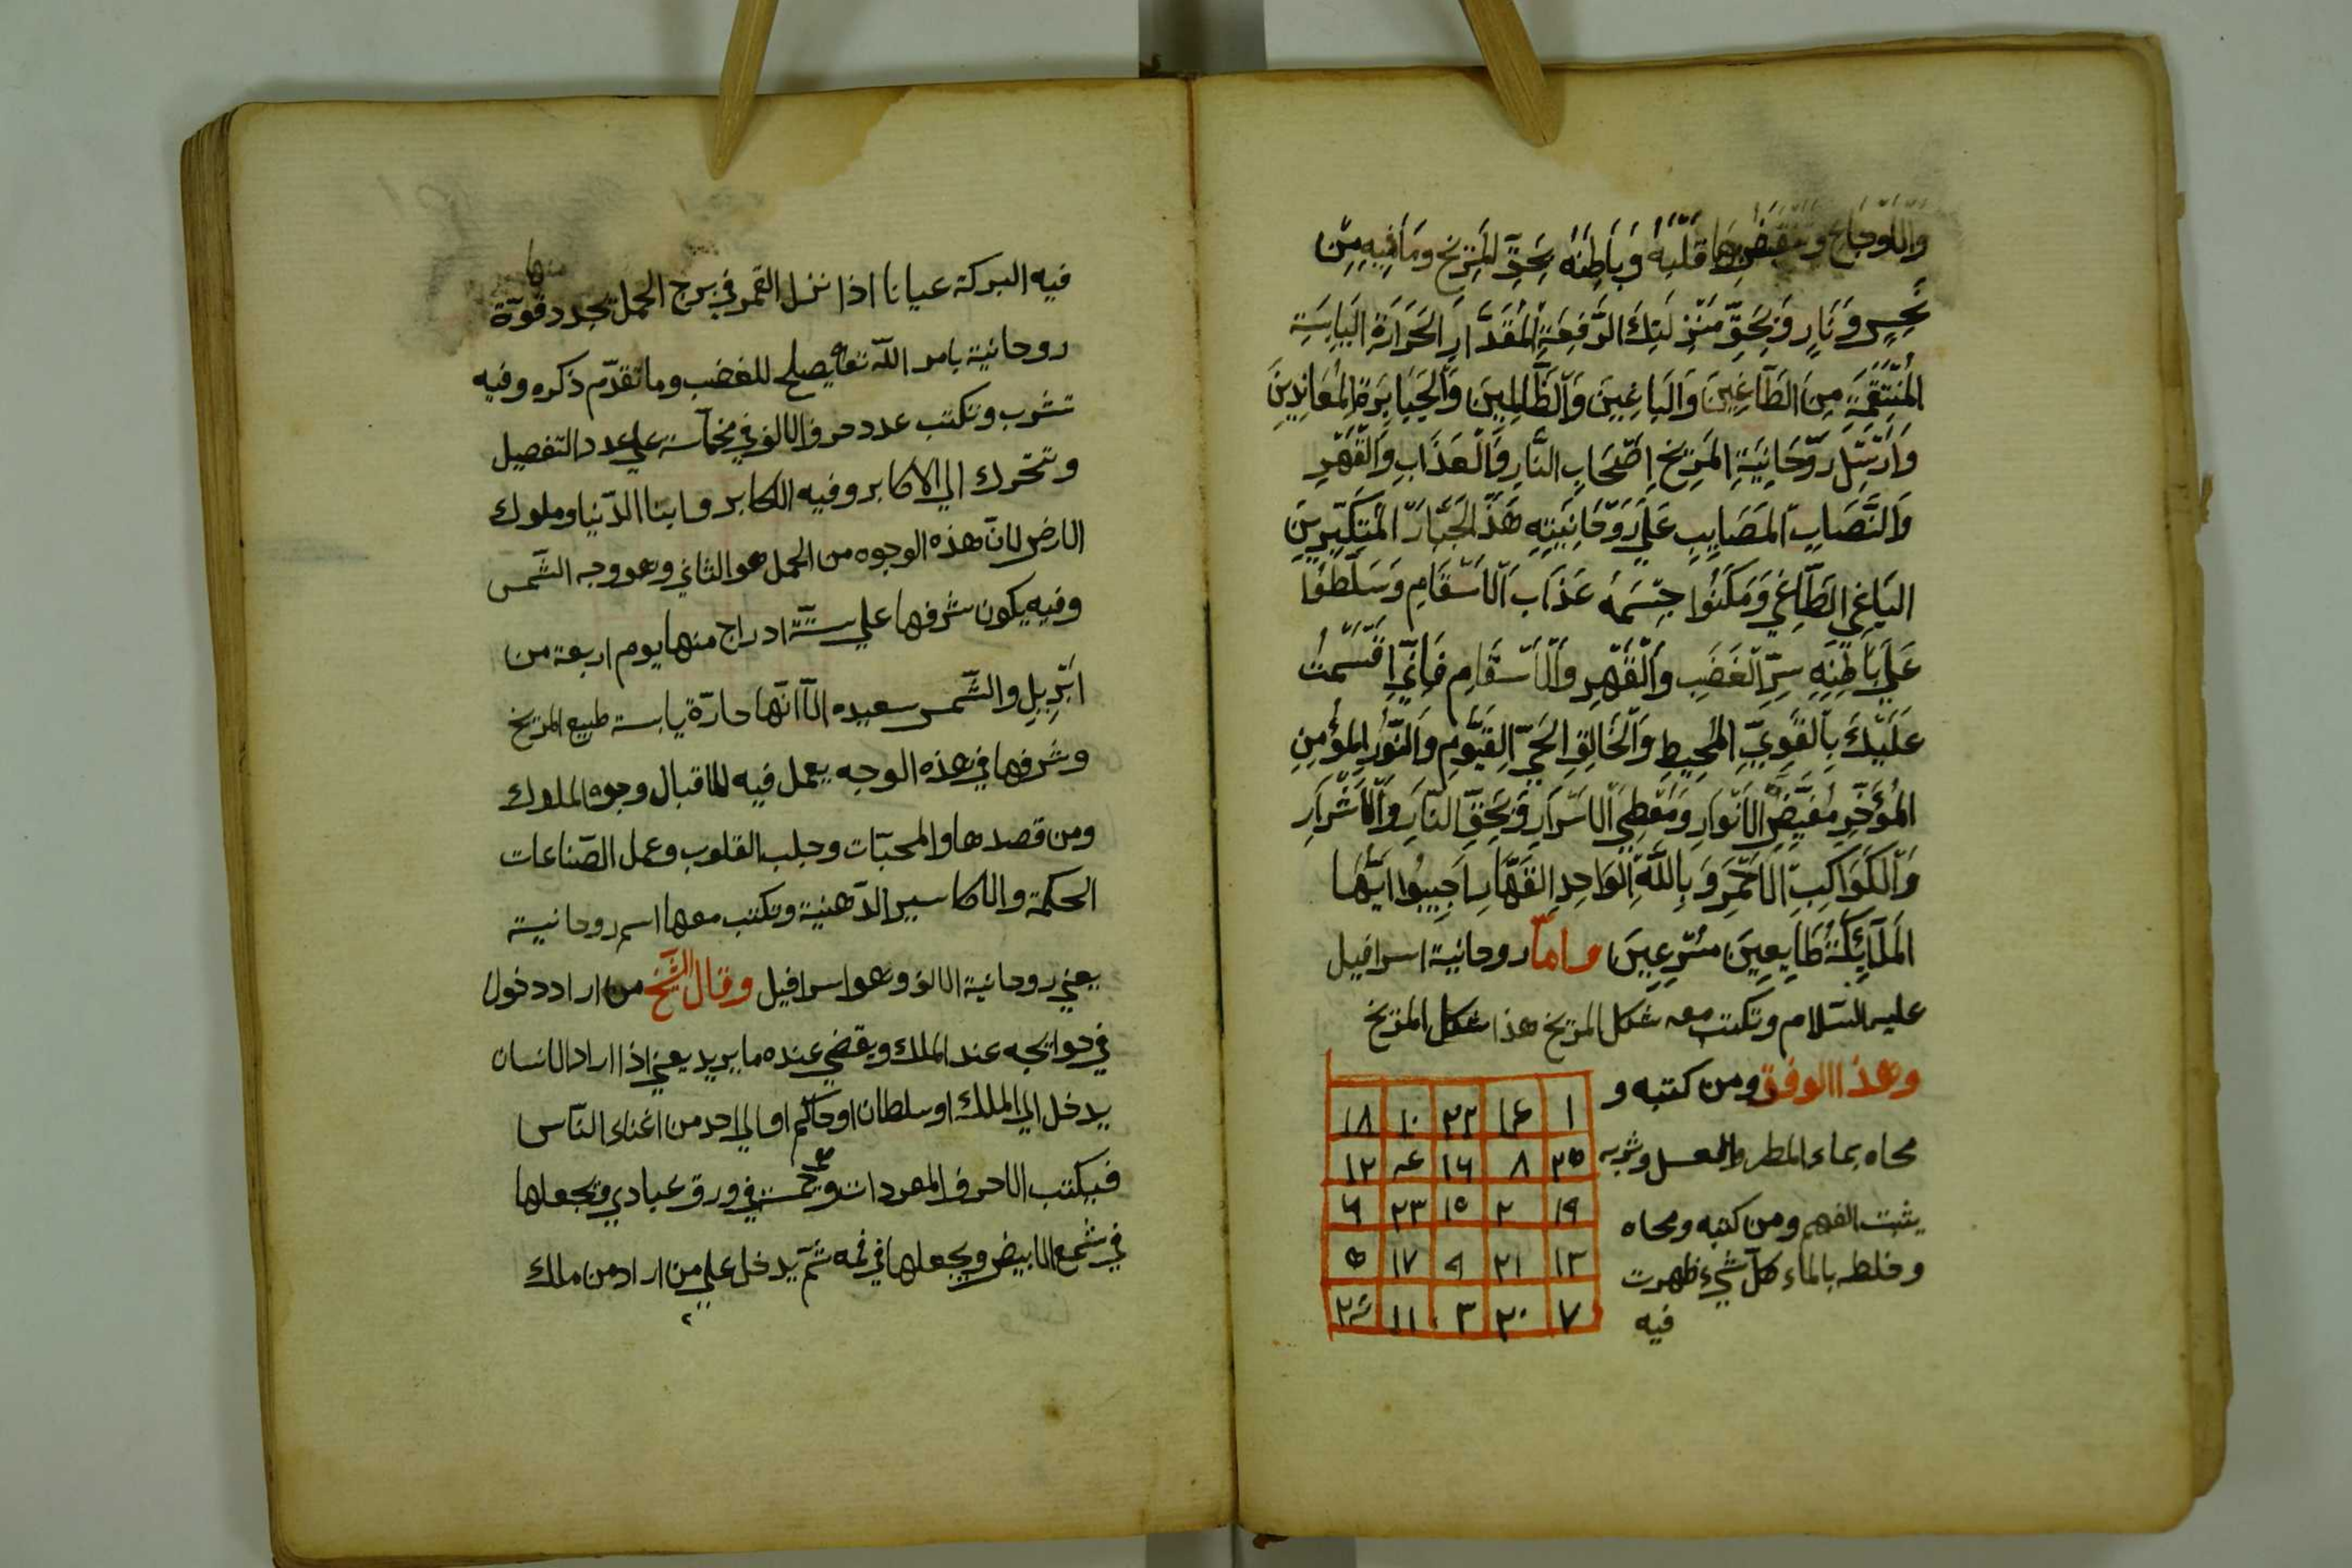 والاوجاع وتقبض بها قلبه وَبَاطِنَهُ بِحَقِّ المَرِّيخ وَمَا فِيهِ مِنْ
نَحِسٍ وَنَارٍ وَبِحَقِّ مَنْزِلَتِكَ الرَّفِعَةِ المُقَدَّارِ الحَرَارَةِ اليَابِسَةِ
المُنْتَقِمَةِ مِنَ الطَّاغِينَ وَالبَاغِينَ وَالظَّالِمِينَ وَالجَبَابِرَةِ المُعَانِدِينَ
وَارْسِلْ رَوْحَانِيَةِ المَرِيخ اصْحَابِ النَّارِ وَالْعَذَابِ وَالْقَهْرِ
وَالنَّصَابِ المَصَايِبِ عَلَى رَوْحَانِيَتِهِ هَذَا الجَبَّارِ المُتَكَبِّرِينَ
البَاغِي الطَّاغِي وَمَكِّنُوا جِسْمَهُ عَذَابَ الاَسْقَامِ وَسَلِّطُوا
عَلَى بَاطِنِهِ سِرِّ الغَضَبِ وَالْقَهْرِ وَالاَسْقَامِ فَاِنِّي اقْسَمْتُ
عَلَيْكَ بِالقَوِيِّ المُحِيطِ وَالخَالِقِ الحَيِّ القَيُّومِ وَالنُّورِ المُؤْمِنِ
المُؤَخِّرِ مُفَيِّضِ الاَنْوَارِ وَمُعْطِي الاَسْرَارِ وَبِحَقِّ النَّارِ وَالاَشْرَارِ
وَالكَوَاكِبِ الاَحْمَرِ وَبِاللَّهِ الوَاحِدِ القَهَّارِ اَجِيبُوا اَيُّهَا
المَلَائِكَةُ طَايِعِينَ مُسْرِعِينَ واما روحانية اسرافيل
عليه السلام وتكتب معه شكل المريخ هذا شكل المريخ
وهذا الوفق ومن كتبه و
محاه بماء المطر والعسل وشربه
يثبت الفهم ومن كتبه ومحاه
وخلطه بالماء كل شيء ظهرت
فيه
١ ١٤ ٢٢ ١٠ ١٨
٢٥ ٨ ١٦ ٤ ١٢
١٩ ٢ ١٥ ٢٣ ٦
١٣ ٢١ ٩ ١٧ ٥
٧ ٢٠ ٣ ١١ ٢٤
فيه البركة عيانا اذا نزل القمر في برج الحمل تجدد قوّة
روحانية بامر اللّه تعا يصلح للغضب وما تقدّم ذكره وفيه
تشرب وتكتب عدد حرف الالف في مخمّسة على عدد التفصيل
وتتحرك الي الاكابر وفيه الكابر وابنا الدّنيا وملوك
الارض لانّ هذه الوجوه من الحمل هو الثاني وهو وجه الشّمس
وفيه يكون شرفها علي ستّة ادراج منها يوم اربعة من
ابْرِيلِ والشّمس سعيده الاّ انّها حارّة يابسة طبيع المريخ
وشرفها في هذه الوجه يعمل فيه للاقبال وجوه الملوك
ومن قصدها والمحبّات وجلب القلوب وعمل الصّناعات
الحكمة والاكاسير الدّهنية وتكتب معها اسم روحانية
يعني روحانية الالف وهو اسرافيل وقال الشّيخ من اراد دخول
في حوايجه عند الملك ويقضي عنده ما يريد يعني اذا اراد الانسان
يدخل الي الملك او سلطان او حاكم او الي احد من اغناء النّاس
فيكتب الاحرف المعردات في ورق عبادي وتجعلها
في شمع الابيض ويجعلها في فمه ثمّ يدخل علي من اراد من ملك